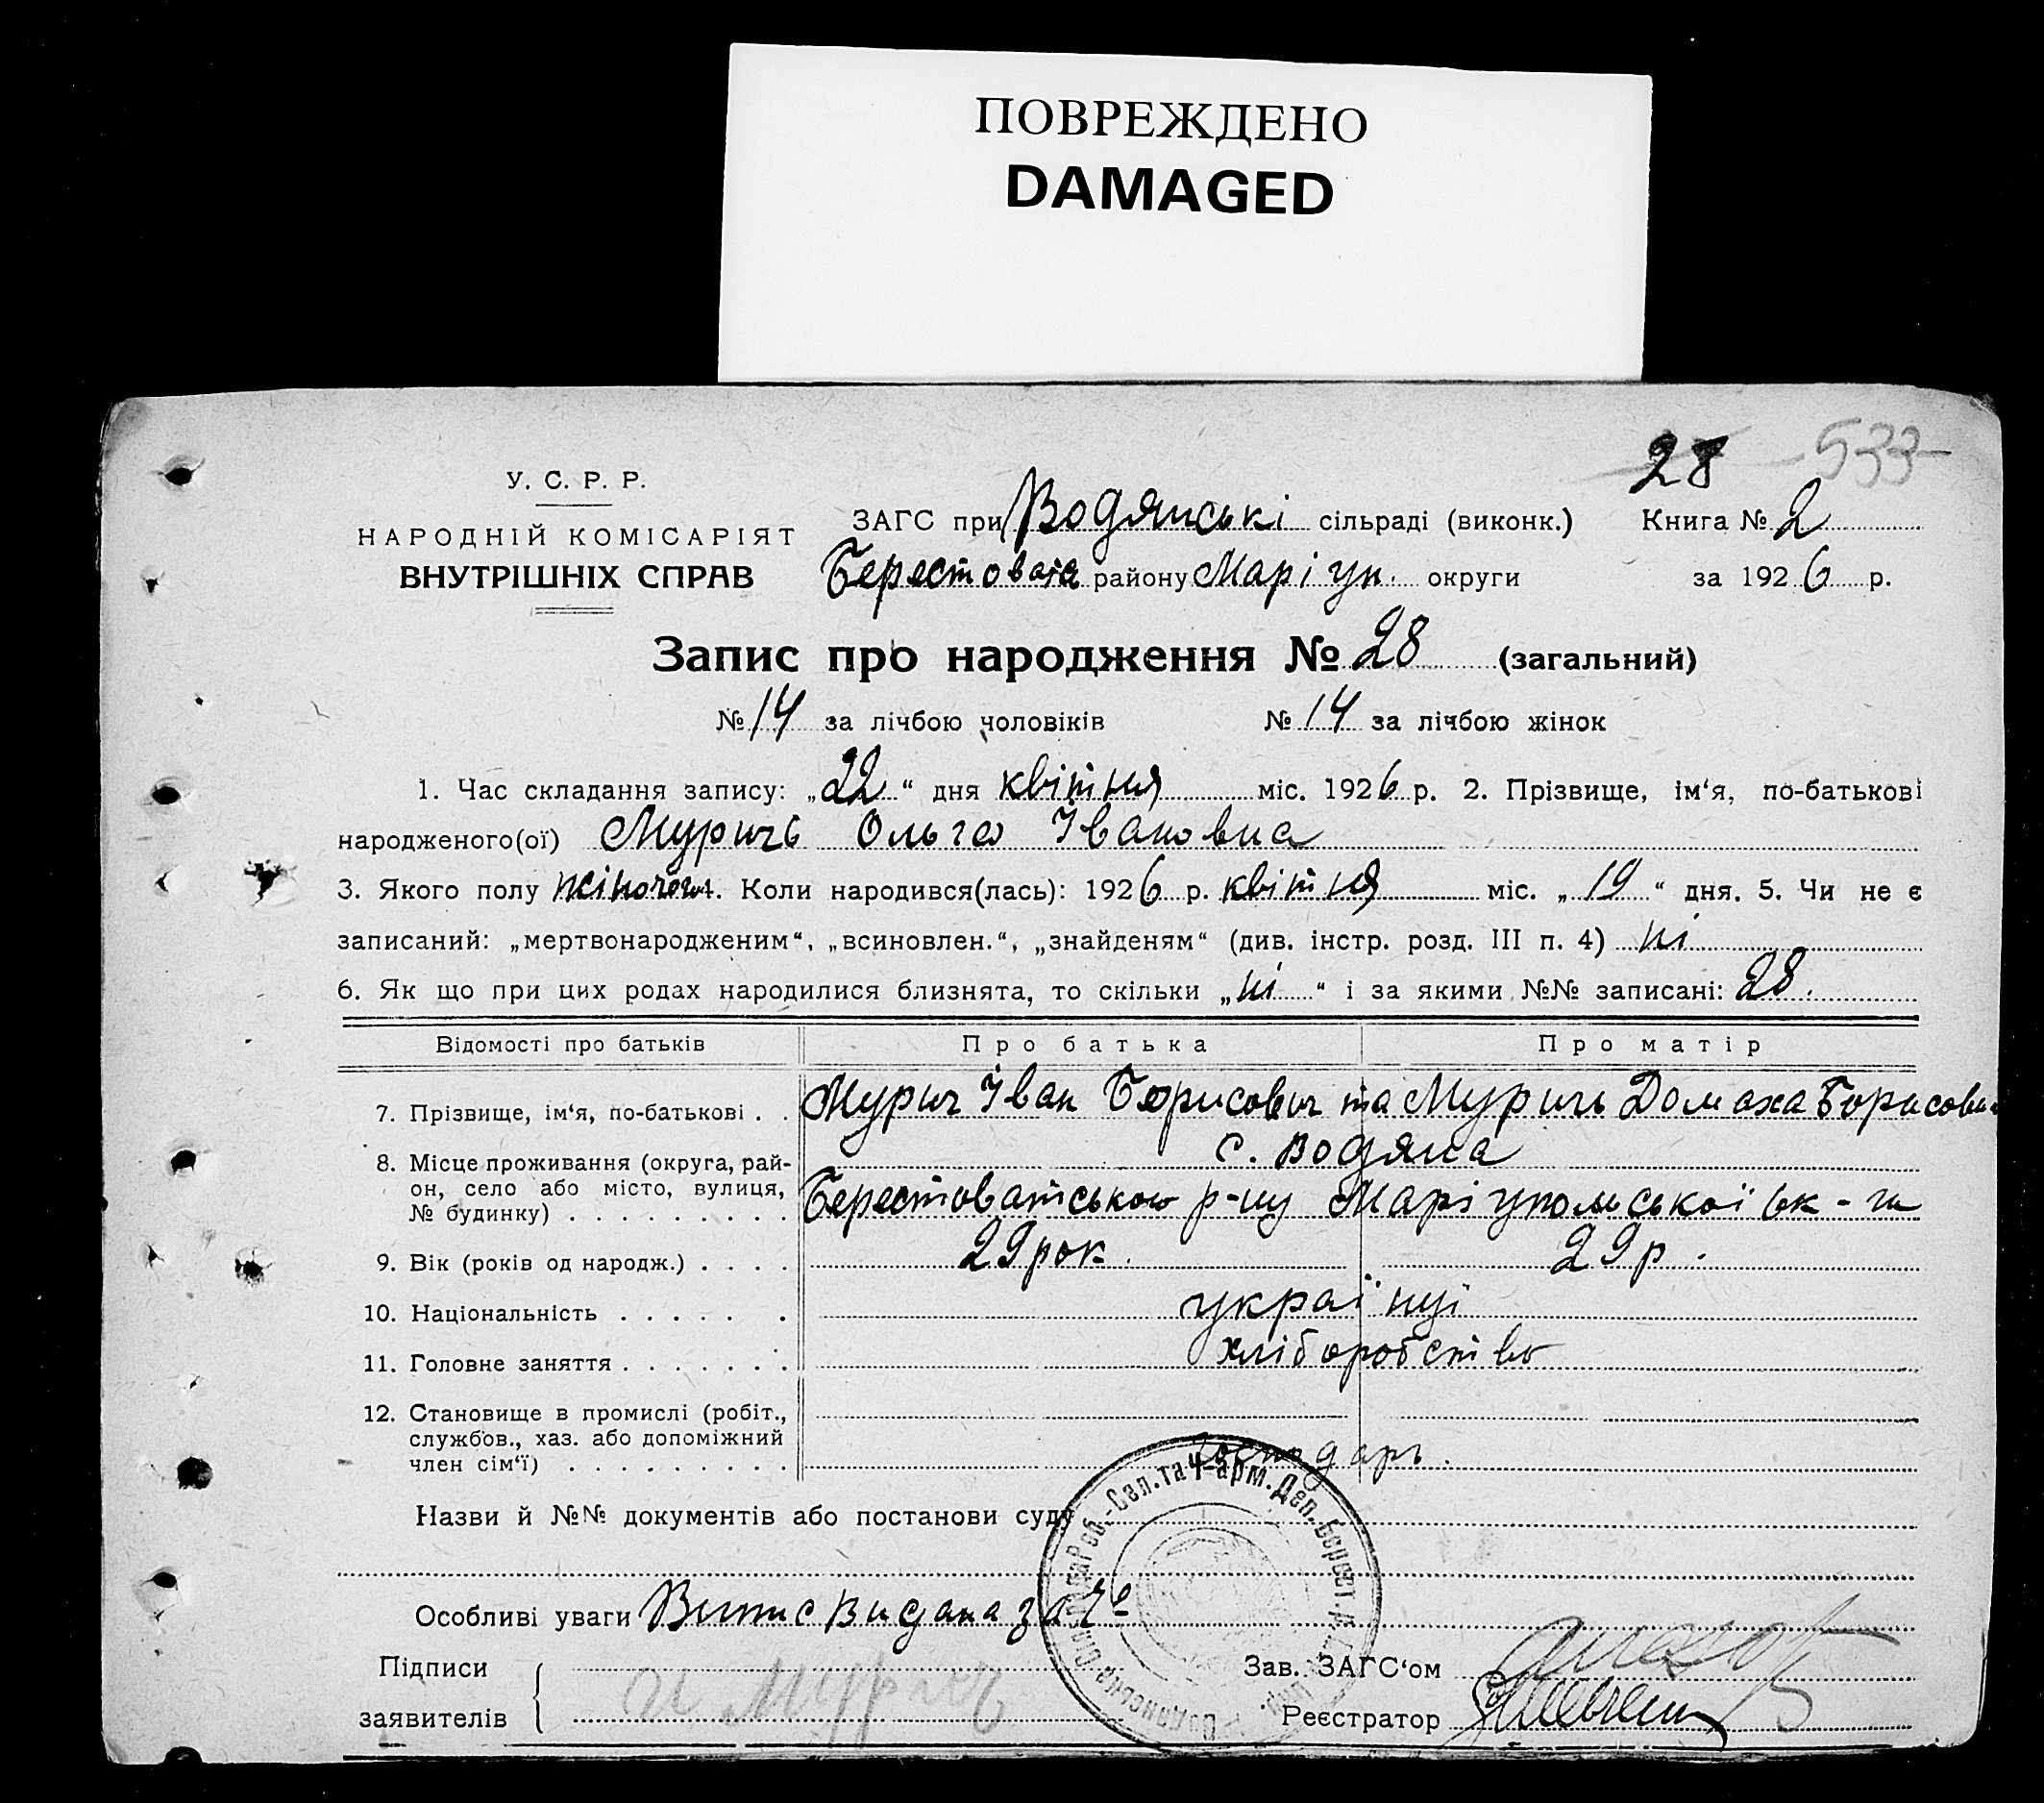 ПОВРЕЖДЕНО
DAMAGED
28 533
У. С. Р. Р.
НАРОДНІЙ КОМІСАРІЯТ
ВНУТРІШНІХ СПРАВ
ЗАГС при Водянські сільраді (виконк.) Книга № 2
району Маріуп. округи за 1926 р.
Запис про народження № 28 (загальний)
№ 14 за лічбою чоловіків № 14 за лічбою жінок
1. Час складання запису: „22“ дня квітня міс. 1926 р. 2. Прізвище, ім‘я, по-батькові
народженого(ої) Муричь Ольга Івановна
3. Якого полу жіночого 4. Коли народився(лась): 1926 р. квітня міс. „19“ дня. 5. Чи не є
записаний: „мертвонародженим“, „всиновлен.“, „знайденям“ (див. інстр. розд. III п. 4) ні
6. Як що при цих родах народилися близнята, то скільки „ні“ і за якими №№ записані: 28.
Відомості про батьків Про батька Про матір
7. Прізвище, ім‘я, по-батькові . . Мурич Іван Борисович та Муричь Домаха
8. Місце проживання (округа, рай- с. Водяна
он, село або місто, вулиця,
№ будинку) . . . . . . . . . Берестоватського р-ну Маріупольської ок-ги
9. Вік (років од народж.) . . . . 29 рок. 29 р.
10. Національність . . . . . . українці
11. Головне заняття . . . . . . . хліборобство
12. Становище в промислі (робіт.,
службов., хаз. або допоміжний
член сім‘ї) . . . . . . . . . господарь.
Назви й №№ документів або постанови суду
Особливі уваги Витис видана за №
Підписи Зав. ЗАГС‘ом
заявителів И Мурич Реєстратор
Рада Роб.-Сел. та Ч-арм. Деп. Берест. р.